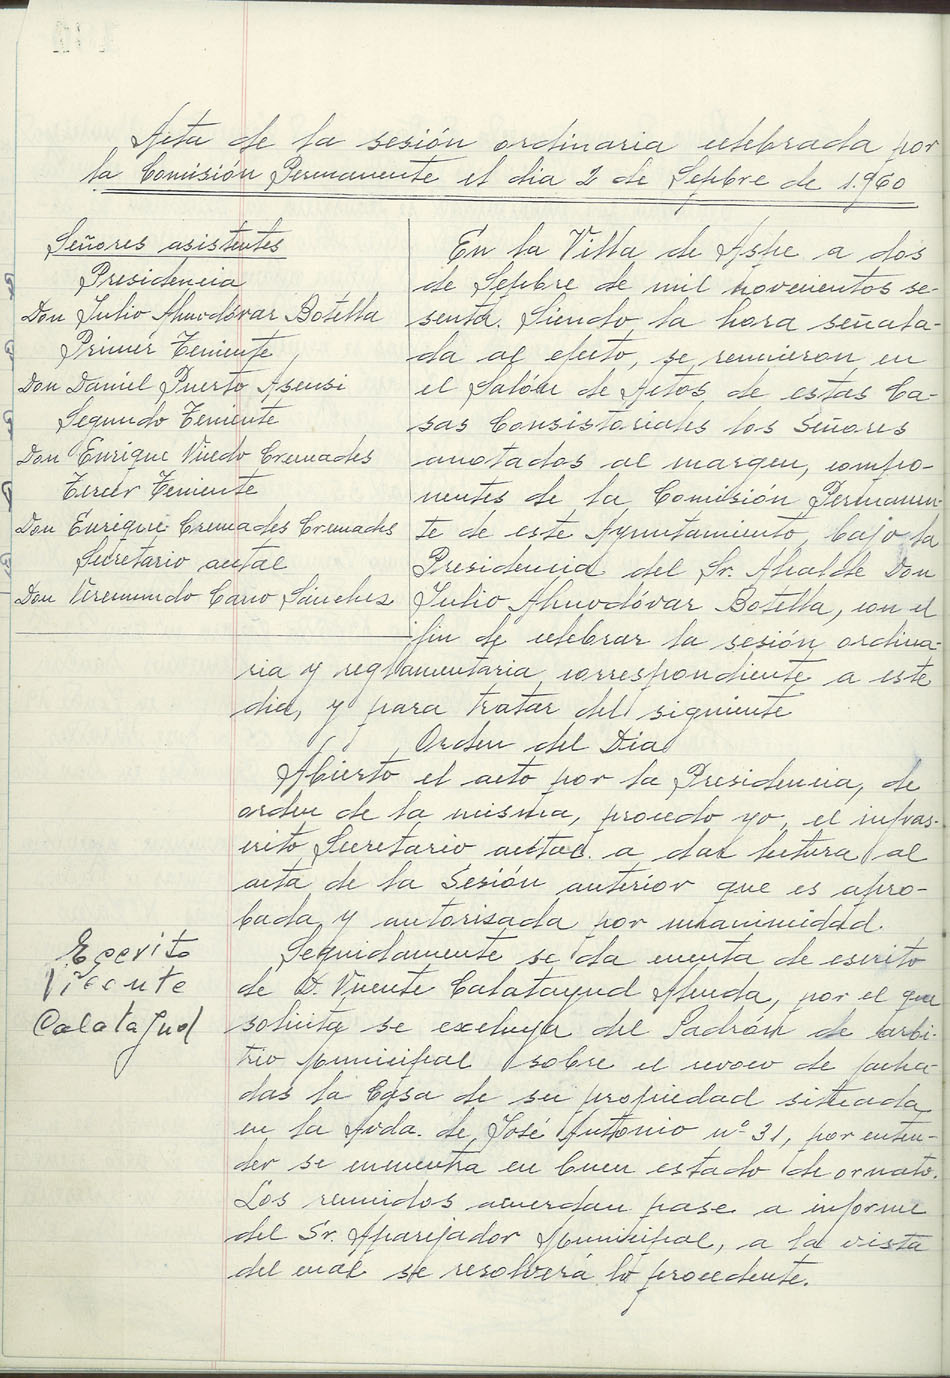 Acta de la sesión ordinaria celebrada por
la Comisión Permanente el dia 2 de Sepbre de 1.960
Señores asistentes
Presidencia
Don Julio Almodóvar Botella
Primer Teniente
Don Daniel Puerto Asensi
Segundo Teniente
Don Enrique Vicedo Cremades
Tercer Teniente
Don Enrique Cremades Cremades
Secretario actal
Don Veremundo Cano Sánchez
En la Villa de Aspe a dos
de Sepbre de mil novecientos se-
senta. Siendo la hora señala-
da al efecto, se reunieron en
el Salón de Actos de estas Ca-
sas Consistoriales los Señores
anotados al margen, compo-
nentes de la Comisión Permanen-
te de este Ayuntamiento, bajo la
Presidencia del Sr. Alcalde Don
Julio Almodóvar Botella, con el
fin de celebrar la sesión ordina-
ria y reglamentaria correspondiente a este
dia, y para tratar del siguiente
Orden del Dia
Abierto el acto por la Presidencia, de
orden de la misma, procedo yo, el infras-
crito Secretario actal. a dar lectura al
acta de la Sesión anterior que es apro-
bada y autorizada por unanimidad.
Escrito
Vicente
Calatayud
Seguidamente se da cuenta de escrito
de D. Vicente Calatayud Almeda, por el que
solicita se excluya del Padrón de arbi-
trio Municipal sobre el revoco de facha-
das la Casa de su propiedad situada
en la Avda. de José Antonio nº 31, por enten-
der se encuentra en buen estado de ornato.
Los reunidos acuerdan pase a informe
del Sr. Aparejador Municipal, a la vista
del cual se resolverá lo procedente.